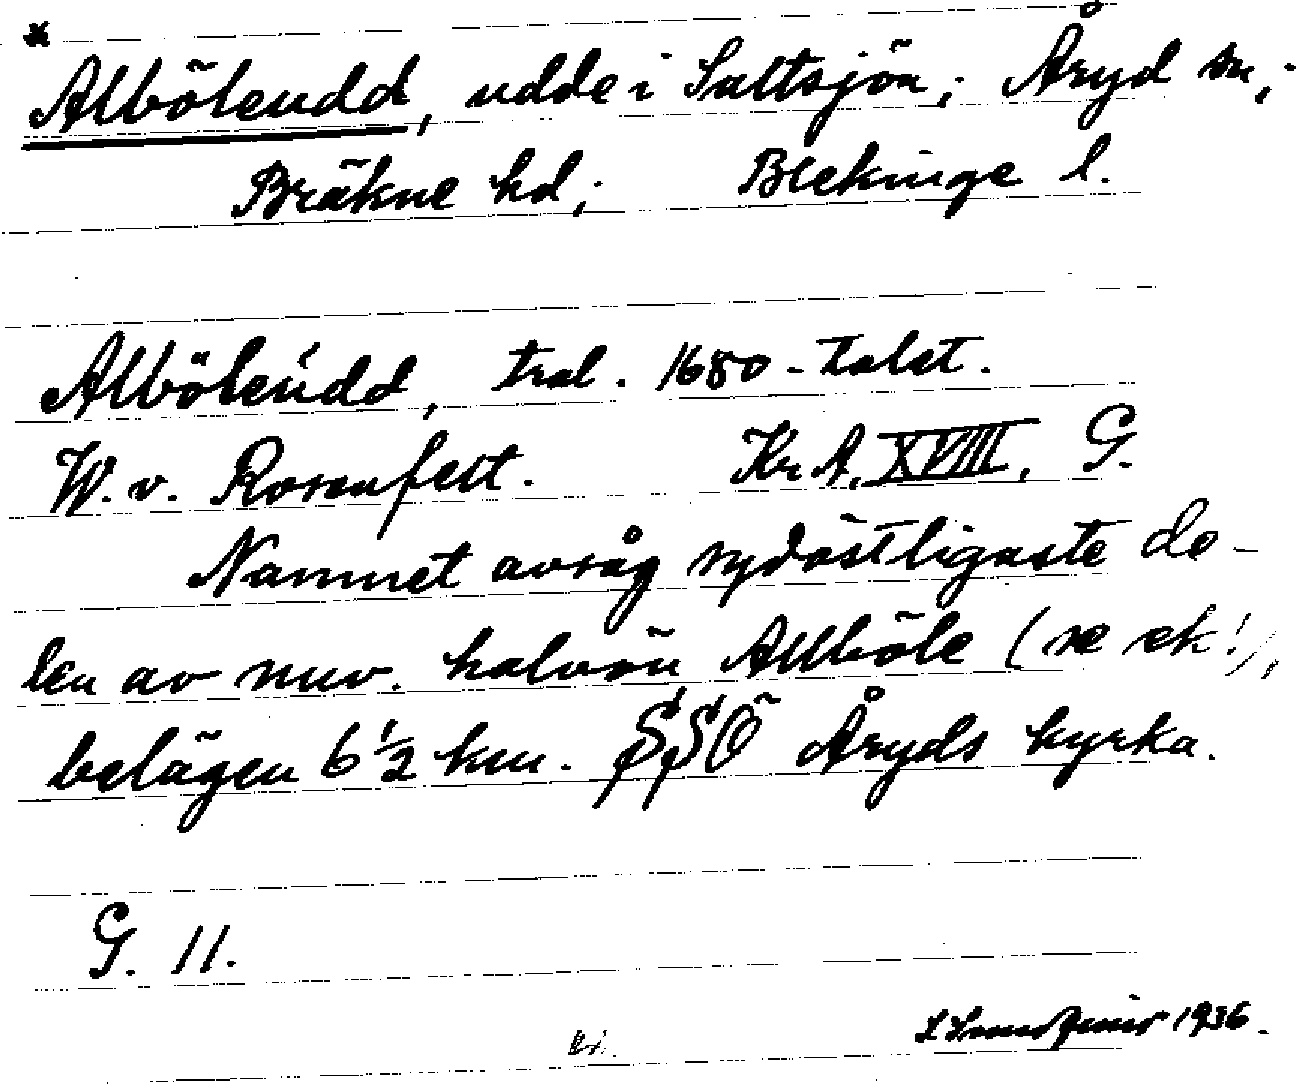 * Alböleudd, udde i Saltsjön; Åryd sn,;
Bräkne hd,; Blekinge l.
Alböleúdd, trol. 1680-talet.
W. v. Rosenfelt. Kr. A, XVIII, G.
Namnet avsåg sydöstligaste de-
len av nuv. halvön Allböle (se ek!),
belägen 6 1/2 km. SSÖ Åryds kyrka.
G. 11.
1936.